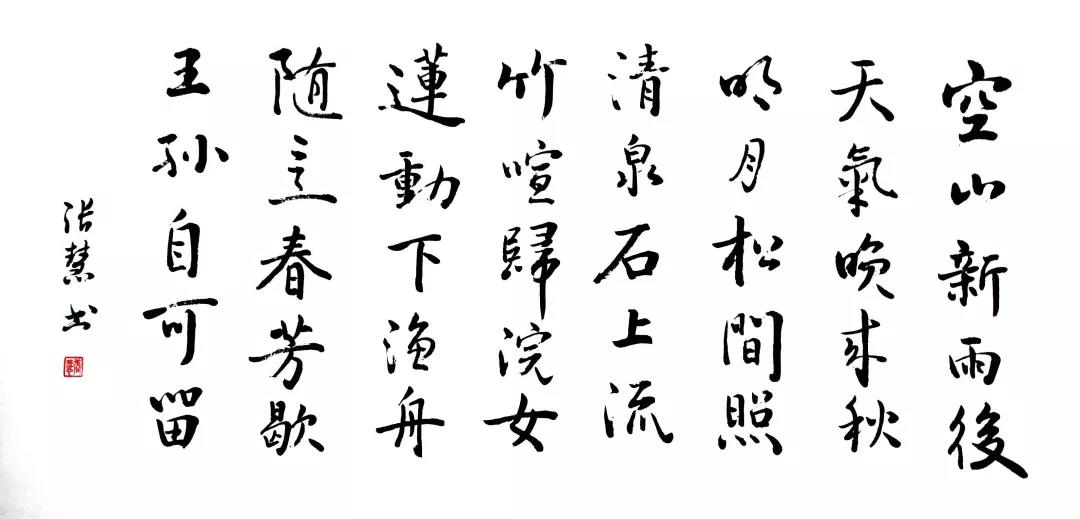 空山新雨後
天氣晚来秋
明月松間照
清泉石上流
竹喧歸浣女
蓮動下渔舟
随意春芳歇
王孙自可留
张慧书